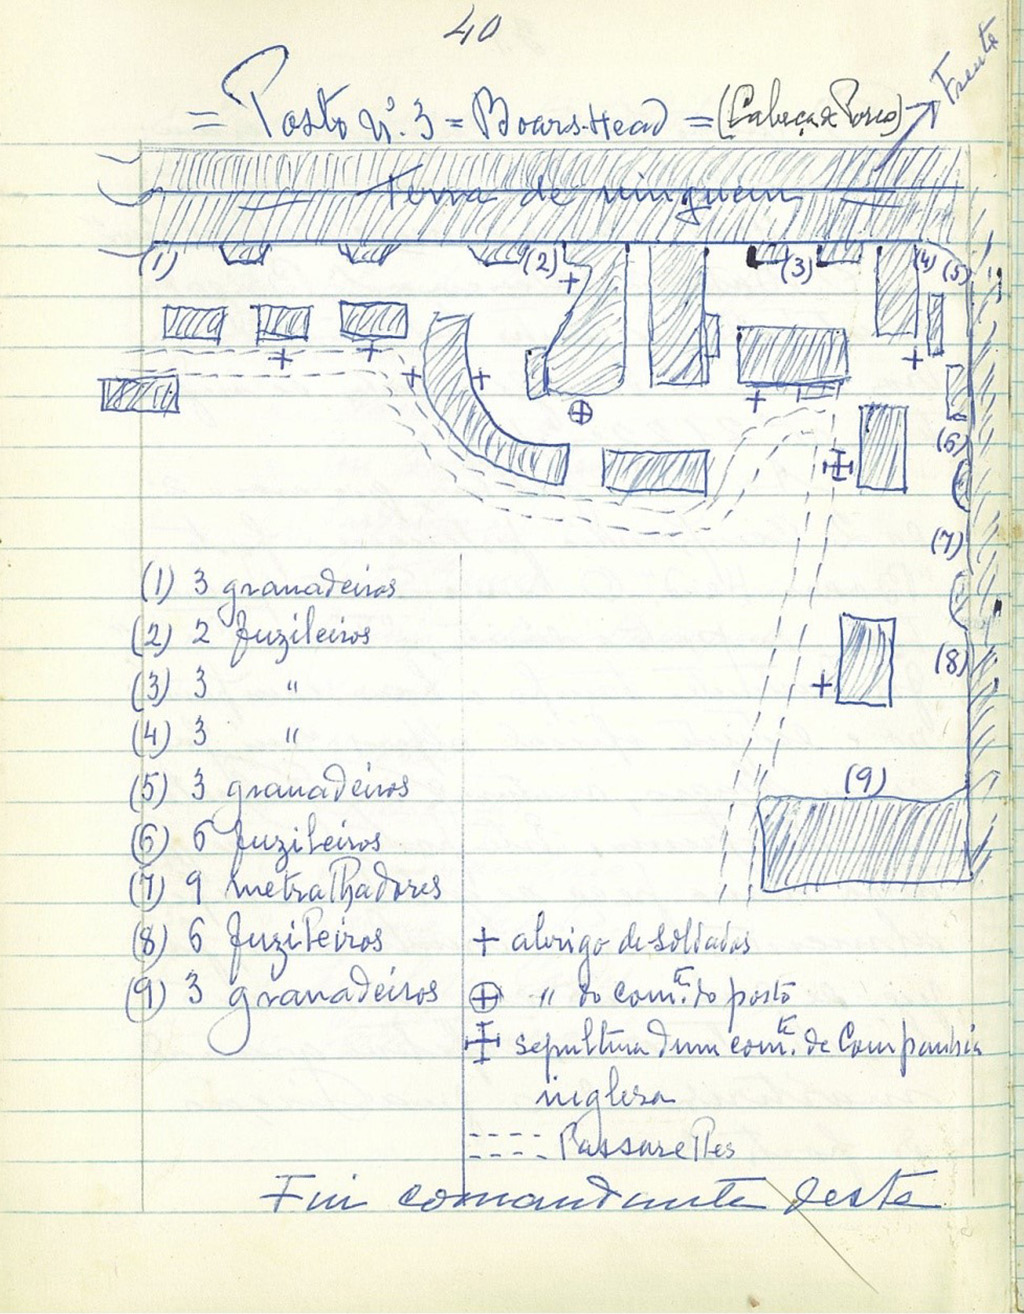 40
= Posto nº. 3 = Boars-Head = (Cabeça de Porco)
Frente
Terra de ninguem
(1) (2) (3) (4) (5)
(6)
(7)
(8)
(9)
(1) 3 granadeiros
(2) 2 fuzileiros
(3) 3 "
(4) 3 "
(5) 3 granadeiros
(6) 6 fuzileiros
(7) 9 metralhadores
(8) 6 fuzileiros
(9) 3 granadeiros
+ abrigo de soldados
⊕ " do com.te do posto
sepultura dum com.te de Companhia
inglesa
Passarelles
Fui comandante deste